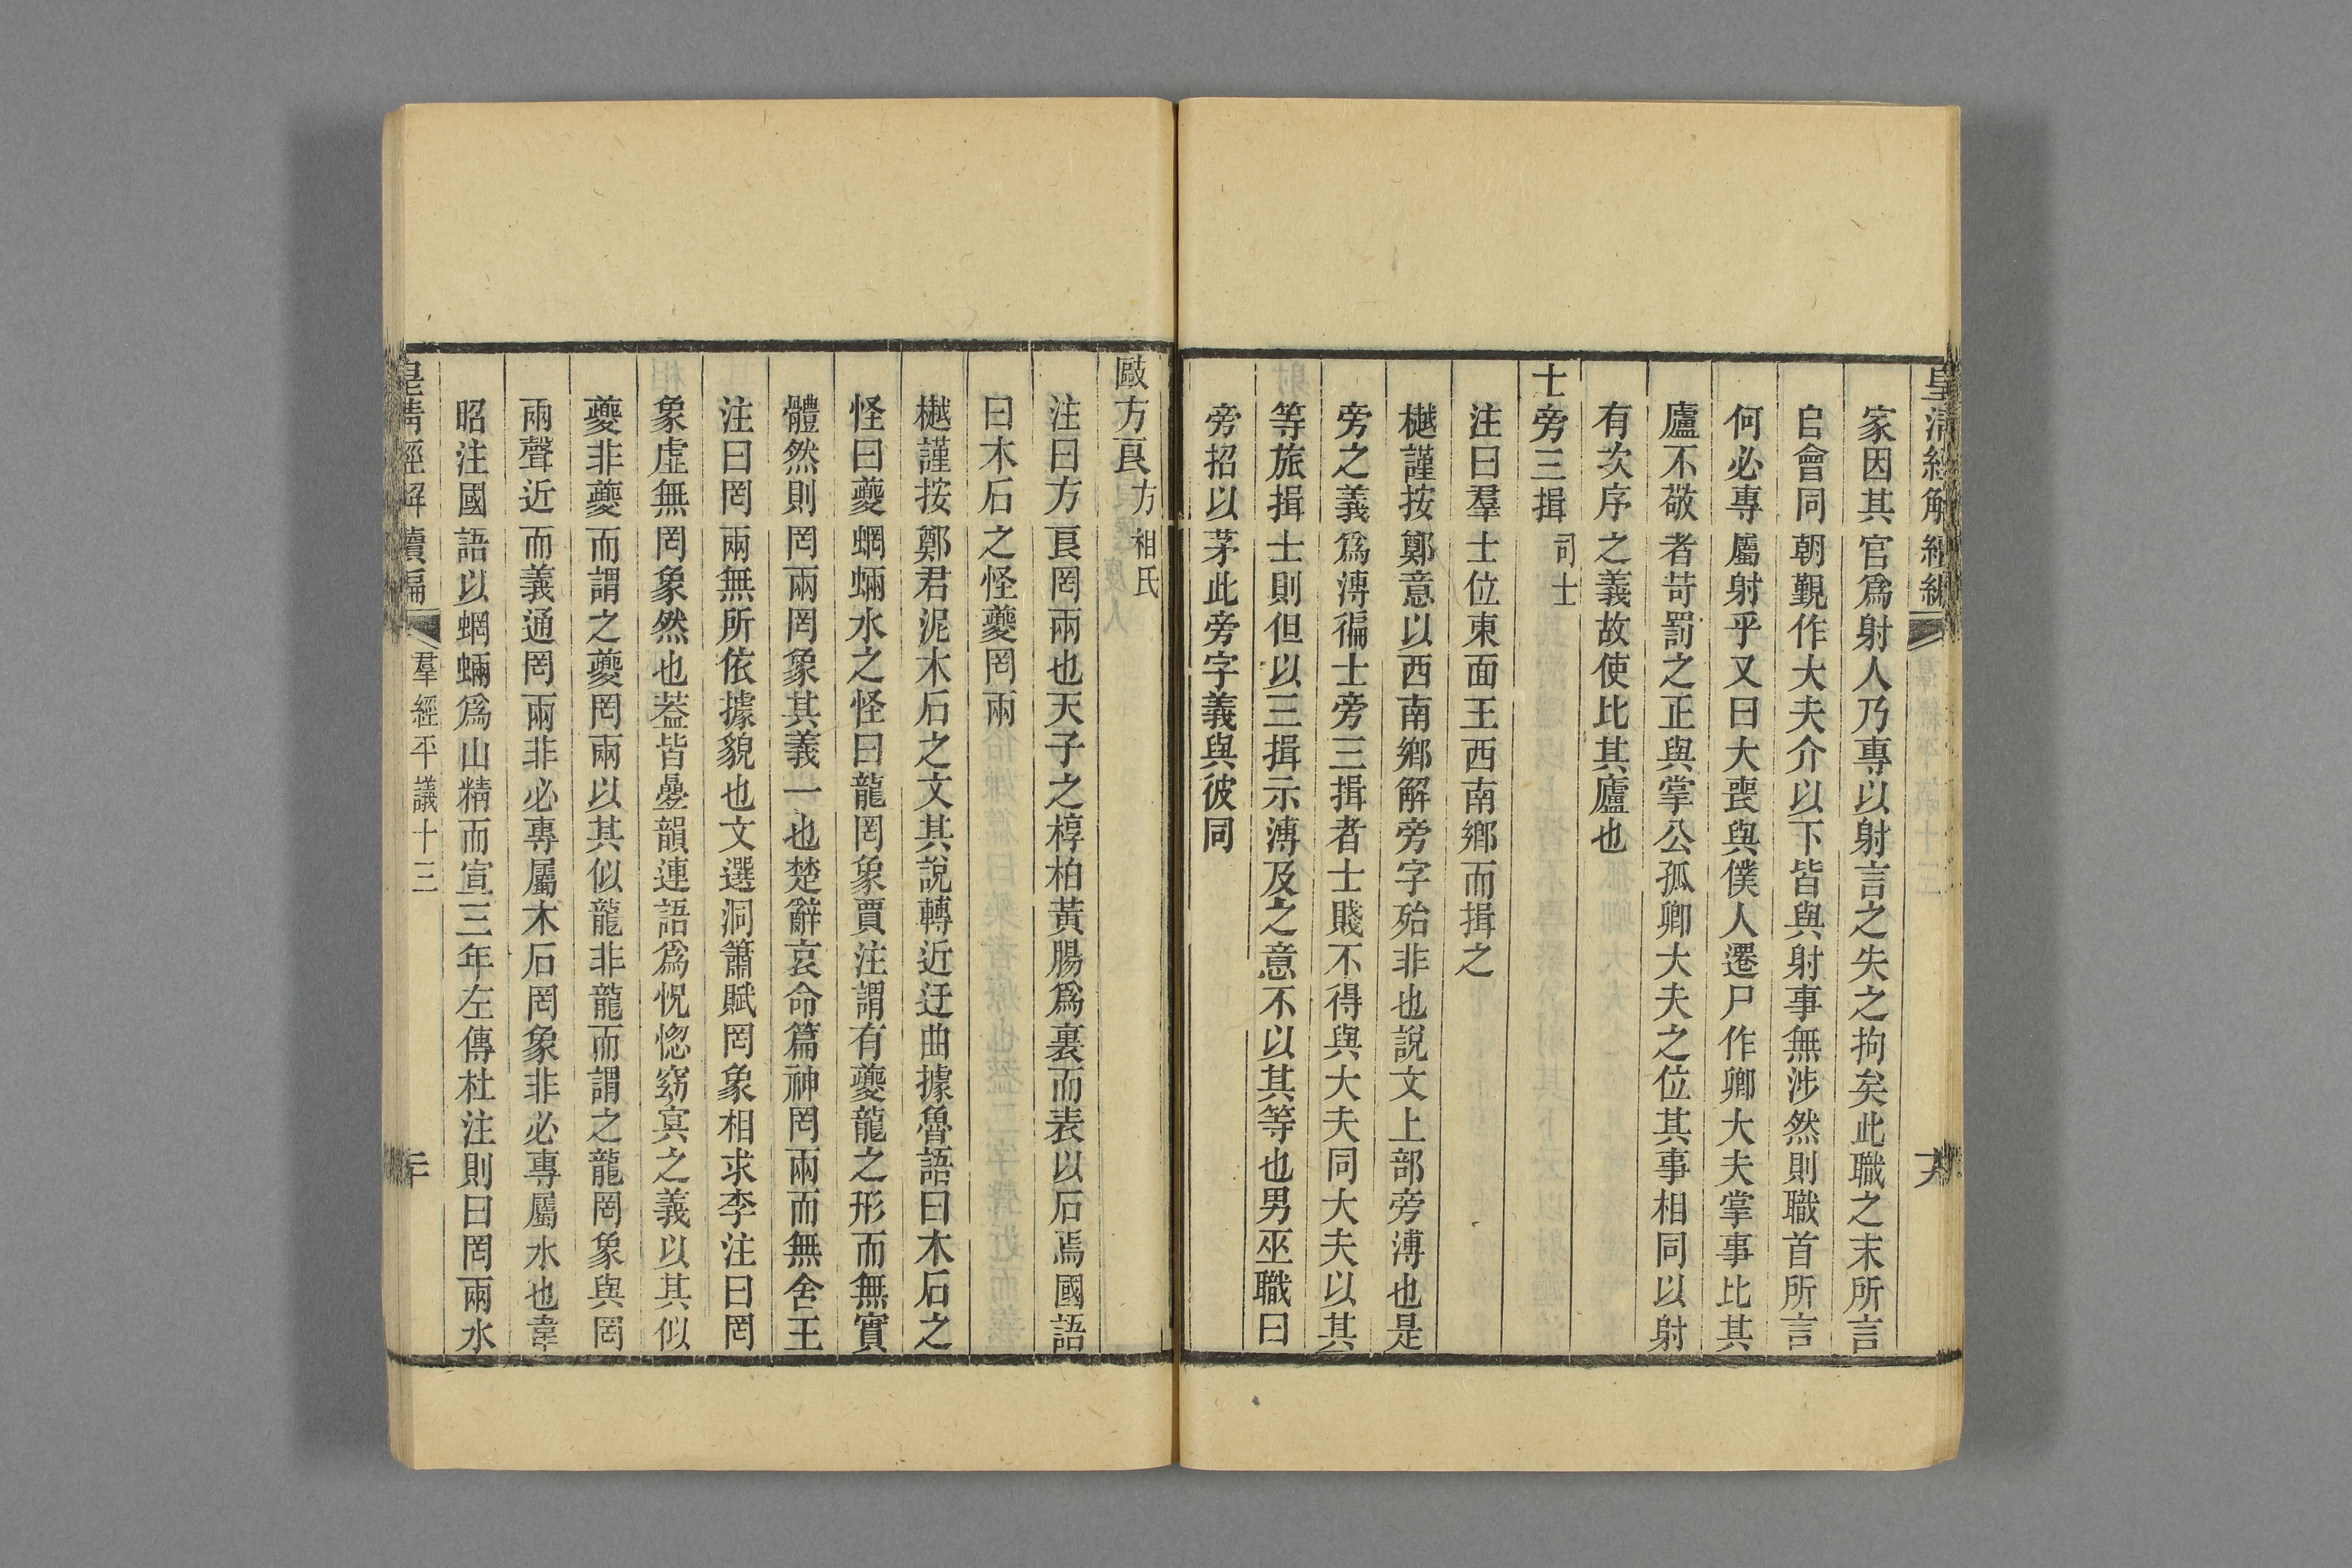 皇清經解續編
家因其官爲射人乃專以射言之失之拘矣此職之末所言
自會同朝覲作大夫介以下皆與射事無涉然則職首所言
何必專屬射乎又曰大喪與僕人遷尸作卿大夫掌事比其
廬不敬者苛罰之正與掌公孤卿大夫之位其事相同以射
有次序之義故使比其廬也
士旁三揖司士
注曰羣士位東面王西南鄉而揖之
樾謹按鄭意以西南鄉解旁字殆非也說文上部旁溥也是
旁之義爲溥徧士旁三揖者士賤不得與大夫同大夫以其
等旅揖士則但以三揖示溥及之意不以其等也男巫職曰
旁招以茅此旁字義與彼同
敺方良方相氏
注曰方良罔兩也天子之椁柏黃腸爲裏而表以石焉國語
曰木石之怪夔罔兩
樾謹按鄭君泥木石之文其說轉近迂曲據魯語曰木石之
怪曰夔蝄蜽水之怪曰龍罔象賈注謂有夔龍之形而無實
體然則罔兩罔象其義一也楚辭哀命篇神罔兩而無舍王
注曰罔兩無所依據貌也文選洞簫賦罔象相求李注曰罔
象虛無罔象然也葢皆疊韻連語爲怳惚窈冥之義以其似
夔非夔而謂之夔罔兩以其似龍非龍而謂之龍罔象與罔
兩聲近而義通罔兩非必專屬木石罔象非必專屬水也韋
昭注國語以蝄蜽爲山精而宣三年左傳杜注則曰罔兩水
皇清經解續編 羣經平議十三